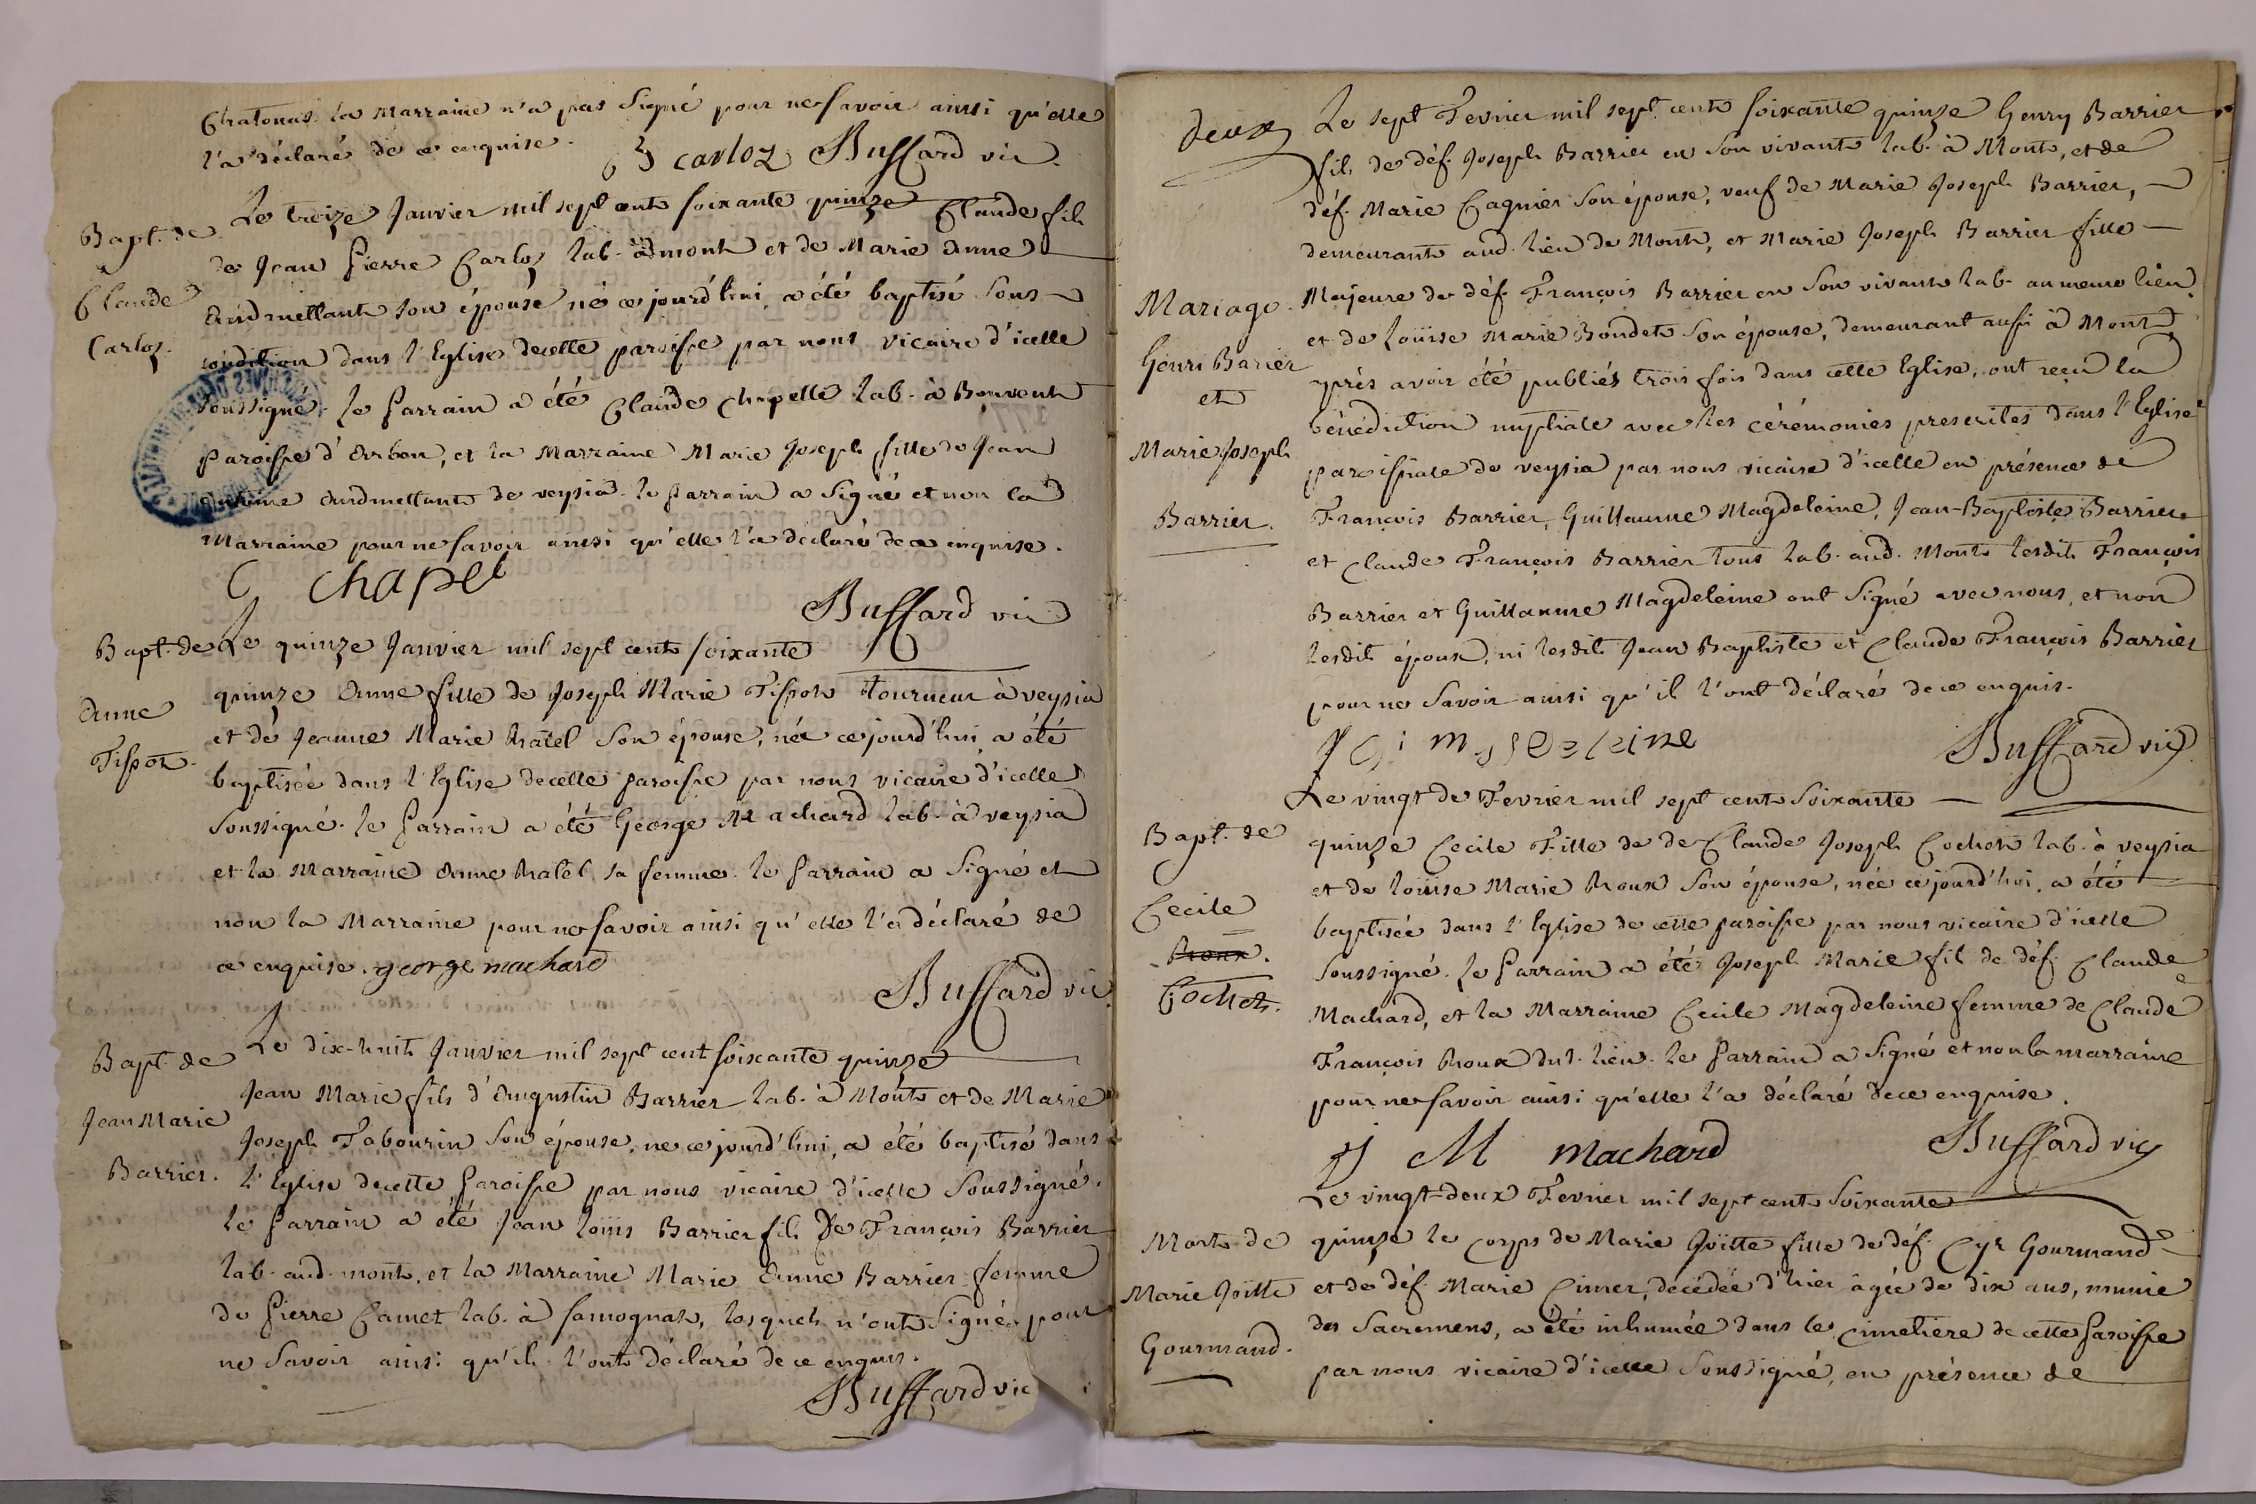 Chatonas la Marraine n'a pas signé pour ne savoir ainsi qu'elle
l'a déclaré de ce enquise.
carloz Buffard vic.
Bapt. de
Claude
Carloz.
Le treize Janvier mil sept cents soixante quinze Claude fils
de Jean Pierre Carloz lab. à dmont et de Marie Anne
son épouse né ce jourd'hui, a été baptisé sous
condition dans l'Eglise decette paroisse par nous vicaire d'icelle
soussigné. le Parrain a été Claude Chapelle lab. à Bouvent
paroisse d'Arbon, et la Marraine Marie Joseph fille de Jean
de veysia. le Parrain a signé et non la
Marraine pour ne savoir ainsi qu'elle l'a déclaré de ce enquise.
C Chapel
Buffard vic
Bapt. de
Anne
Tissot.
Le quinze Janvier mil sept cents soixante
quinze Anne fille de Joseph Marie Tissot Tourneur à veysia
et de Jeanne Marie son épouse, née ce jourd'hui, a été
baptisée dans l'Eglise decette paroisse par nous vicaire d'icelle
soussigné. le Parrain a été George Machard lab. à veysia
et la Marraine Anne sa femme. le Parrain a signé et
non la Marraine pour ne savoir ainsi qu'elle l'a déclaré de
ce enquise. george machard
Buffard vic.
Bapt. de
Jean Marie
Barrier.
Le dix-huit Janvier mil sept cent soixante quinze
Jean Marie fils d'Augustin Barrier lab. à Monts et de Marie
Joseph Tabourin son épouse, ne ce jourd'hui, a été baptisé dans
l'Eglise decette Paroisse par nous vicaire d'icelle soussigné.
le Parrain a été Jean Loüis Barrier fils de François Barrier
lab. aud. monts, et la Marraine Marie Anne Barrier femme
de Pierre Camet lab. à samognat, lesquels n'ont signé pour
ne savoir ainsi qu'ils l'ont déclaré de ce enquis.
Buffard vic
deux
Mariage.
Henri Barier
et
Marie Joseph
Barrier.
Le sept Fevrier mil sept cents soixante quinze Henry Barrier
fils de déf. Joseph Barrier en son vivant lab. à Monts, et de
déf. Marie Cagnier son épouse, veuf de Marie Joseph Barrier,
demeurants aud. lieu de Monts, et Marie Joseph Barrier fille
Majeure de déf. François Barrier en son vivant lab. au meme lieu,
et de Loüise Marie Bondet son épouse, demeurant aussi à Monts
après avoir été publiés trois fois dans cette Eglise, ont reçu la
bénédiction nuptiale avec les cérémonies prescrites dans l'Eglise
paroissiale de veysia par nous vicaire d'icelle en présence de
François Barrier, Guillaume Magdeleine, Jean-Baptiste Barrier
et Claude François Barrier tous lab. aud. Monts lesdits François
Barrier et Guillaume Magdeleine ont signé avec nous, et non
lesdits époux, ni lesdits Jean Baptiste et Claude François Barrier
pour ne savoir ainsi qu'il l'ont déclaré de ce enquis.
Buffard vic.
Bapt. de
Cecile
Roux.
Cochet.
Le vingt de Fevrier mil sept cents soixante
quinze Cecile Fille de de Claude Joseph Cochet lab. à veysia
et de Loüise Marie Roux son épouse, née ce jourd'hui, a été
baptisée dans l'Eglise de cette paroisse par nous vicaire d'icelle
soussigné. Le Parrain a été Joseph Marie fils de déf. Claude
Machard, et la Marraine Cecile Magdeleine femme de Claude
François Roux dud. lieu. le Parrain a signé et non la marraine
pour ne savoir ainsi qu'elle l'a déclaré de ce enquise.
J M machard Buffard vic
Morts de
Marie Joitte
Gourmand.
Le vingt-deux Fevrier mil sept cents soixante
quinze le Corps de Marie Joitte fille de déf. Cyr Gourmand
et de déf. Marie décédée d'hier âgée de dix ans, munie
des Sacremens, a été inhumée dans le Cimetiere de cette Paroisse
par nous vicaire d'icelle soussigné, en présence de